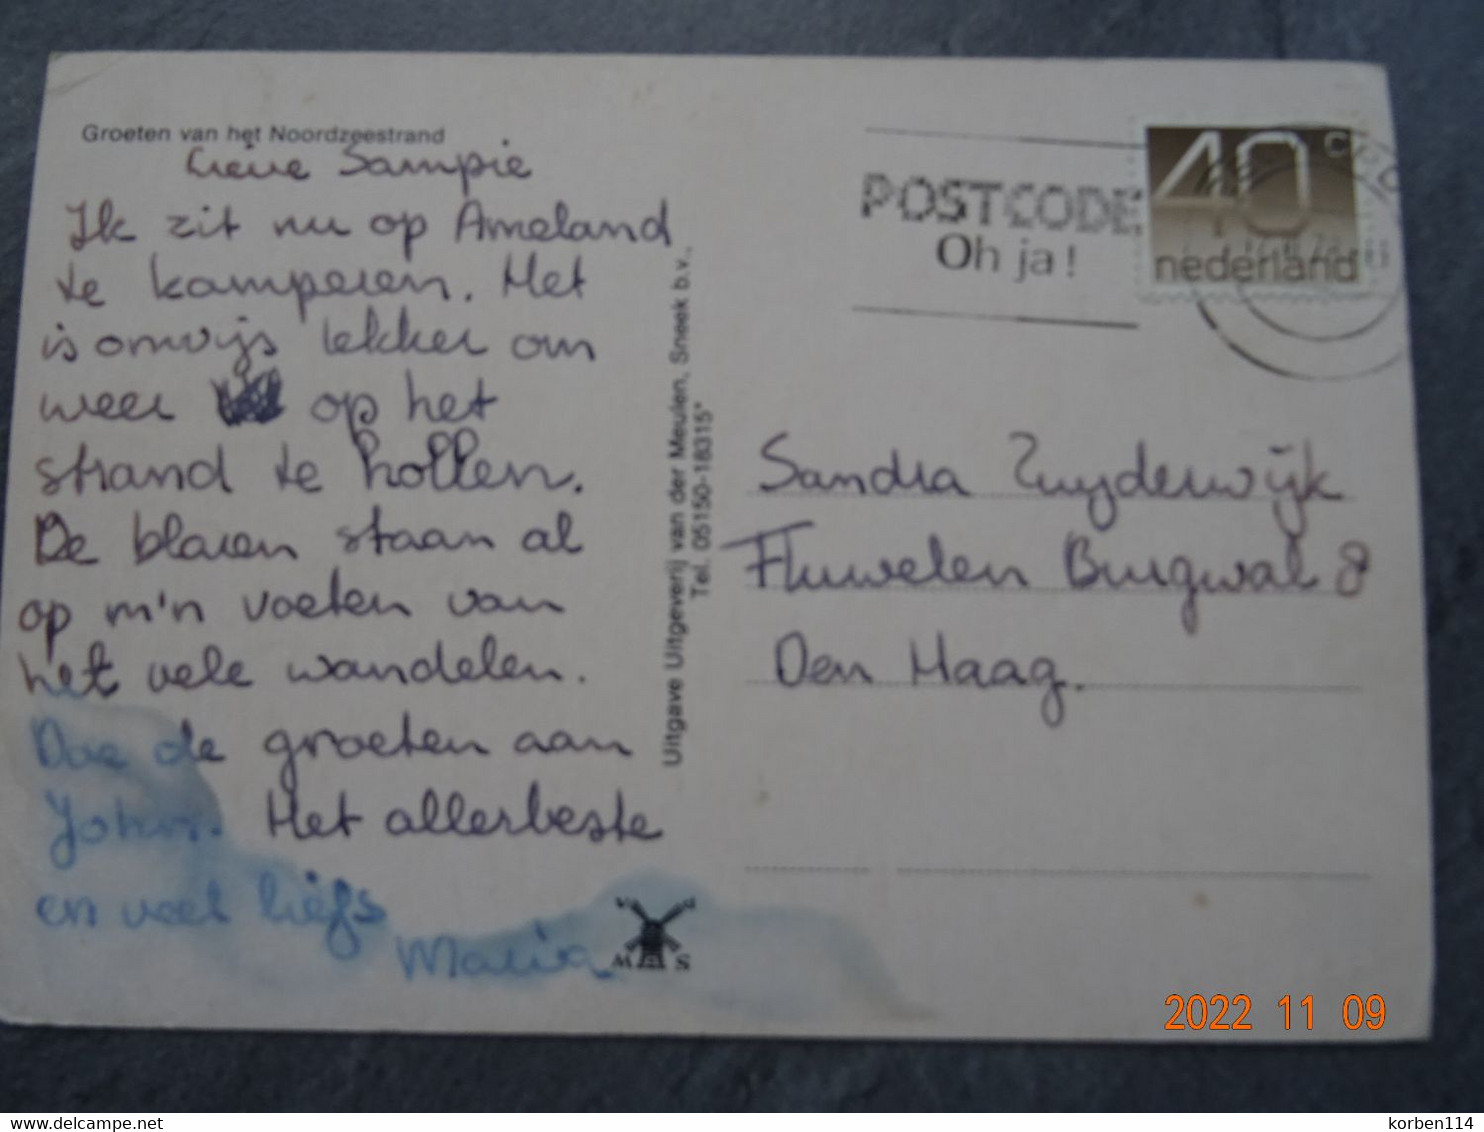 Groeten van het Noordzeestrand
Lieve Sampie
Ik zit nu op Ameland
te kamperen. Het
is onwijs lekker om
weer op het
strand te hollen.
De blaren staan al
op m'n voeten van
het vele wandelen.
Doe de groeten aan
Johan. Het allerbeste
en veel liefs
Maria
Uitgave Uitgeverij van der Meulen, Sneek b.v.,
Tel. 05150-18315*
V D
M S
POSTCODE
Oh ja!
40c
nederland
Sandra Zuyderwijk
Fluwelen Burgwal 8
Den Haag.
2022 11 09
delcampe.net
korben114